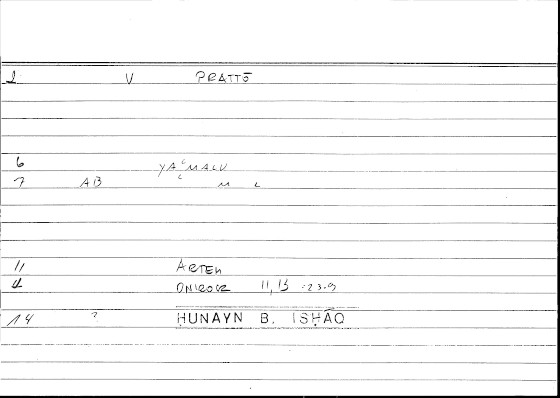 2 V PRATTŌ
6 YAʿMALU
7 AB M L
11 ARTEM
4 ONIROCR II, 13 :23.9
14 ? ḤUNAYN B. ISḤĀQ